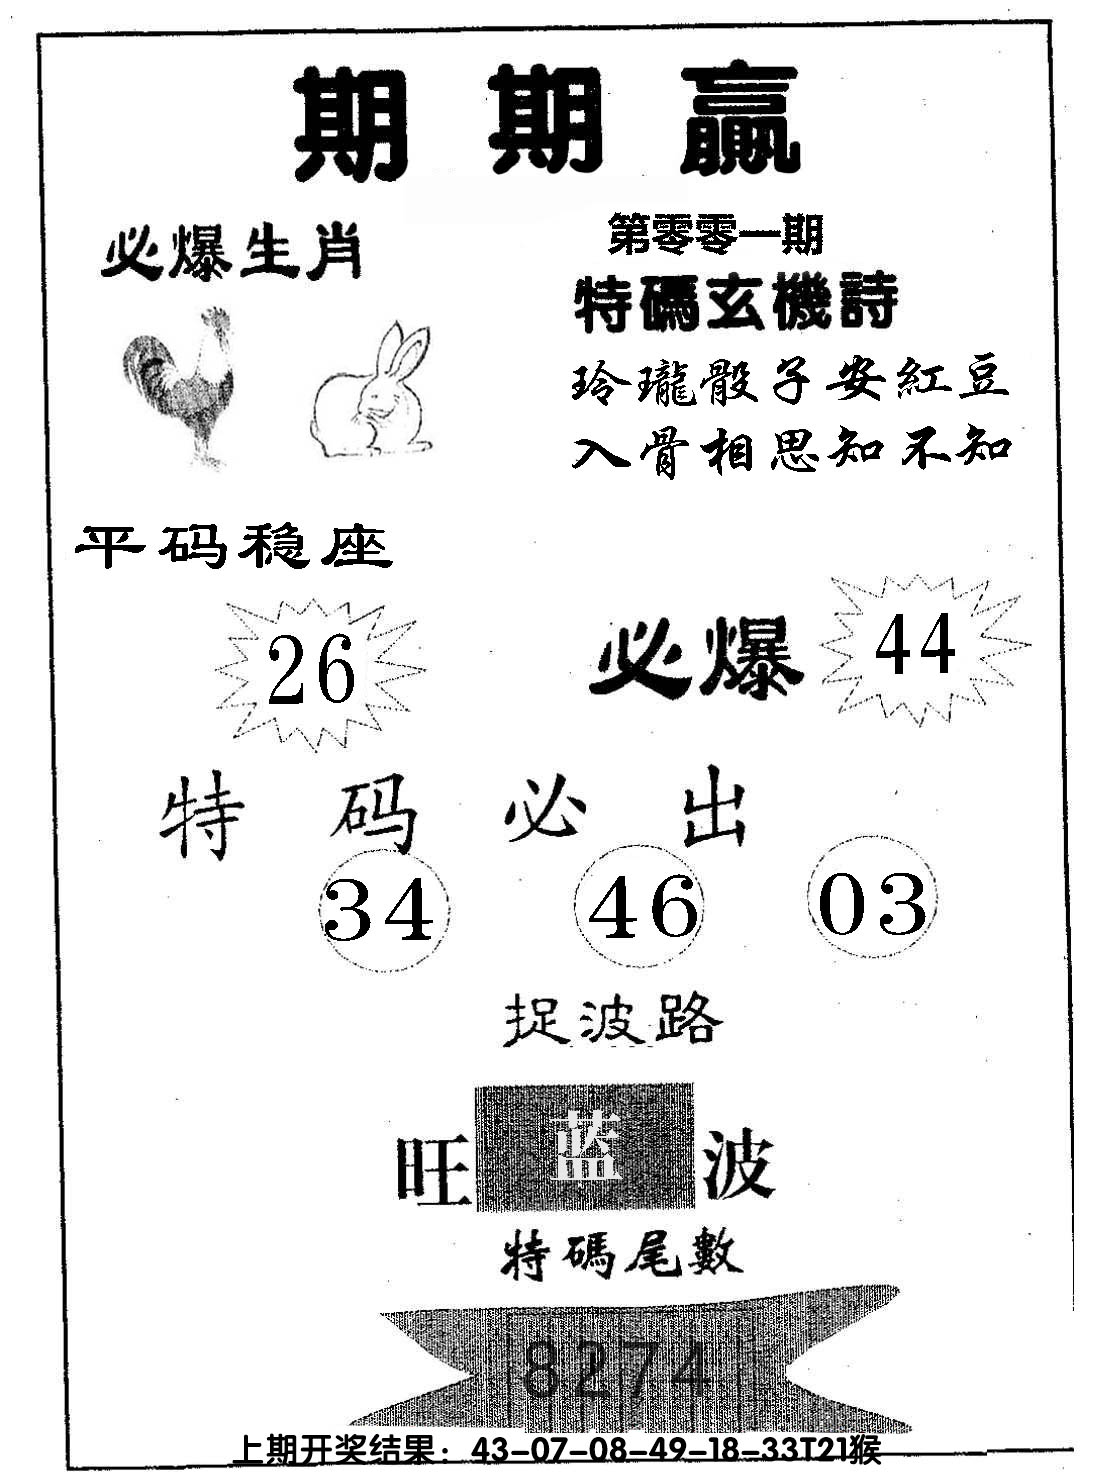 期期贏
必爆生肖
第零零一期
特碼玄機詩
玲瓏骰子安紅豆
入骨相思知不知
平码稳座
26
必爆 44
特码必出
34 46 03
捉波路
旺 蓝 波
特碼尾數
8274
上期开奖结果：43-07-08-49-18-33T21猴